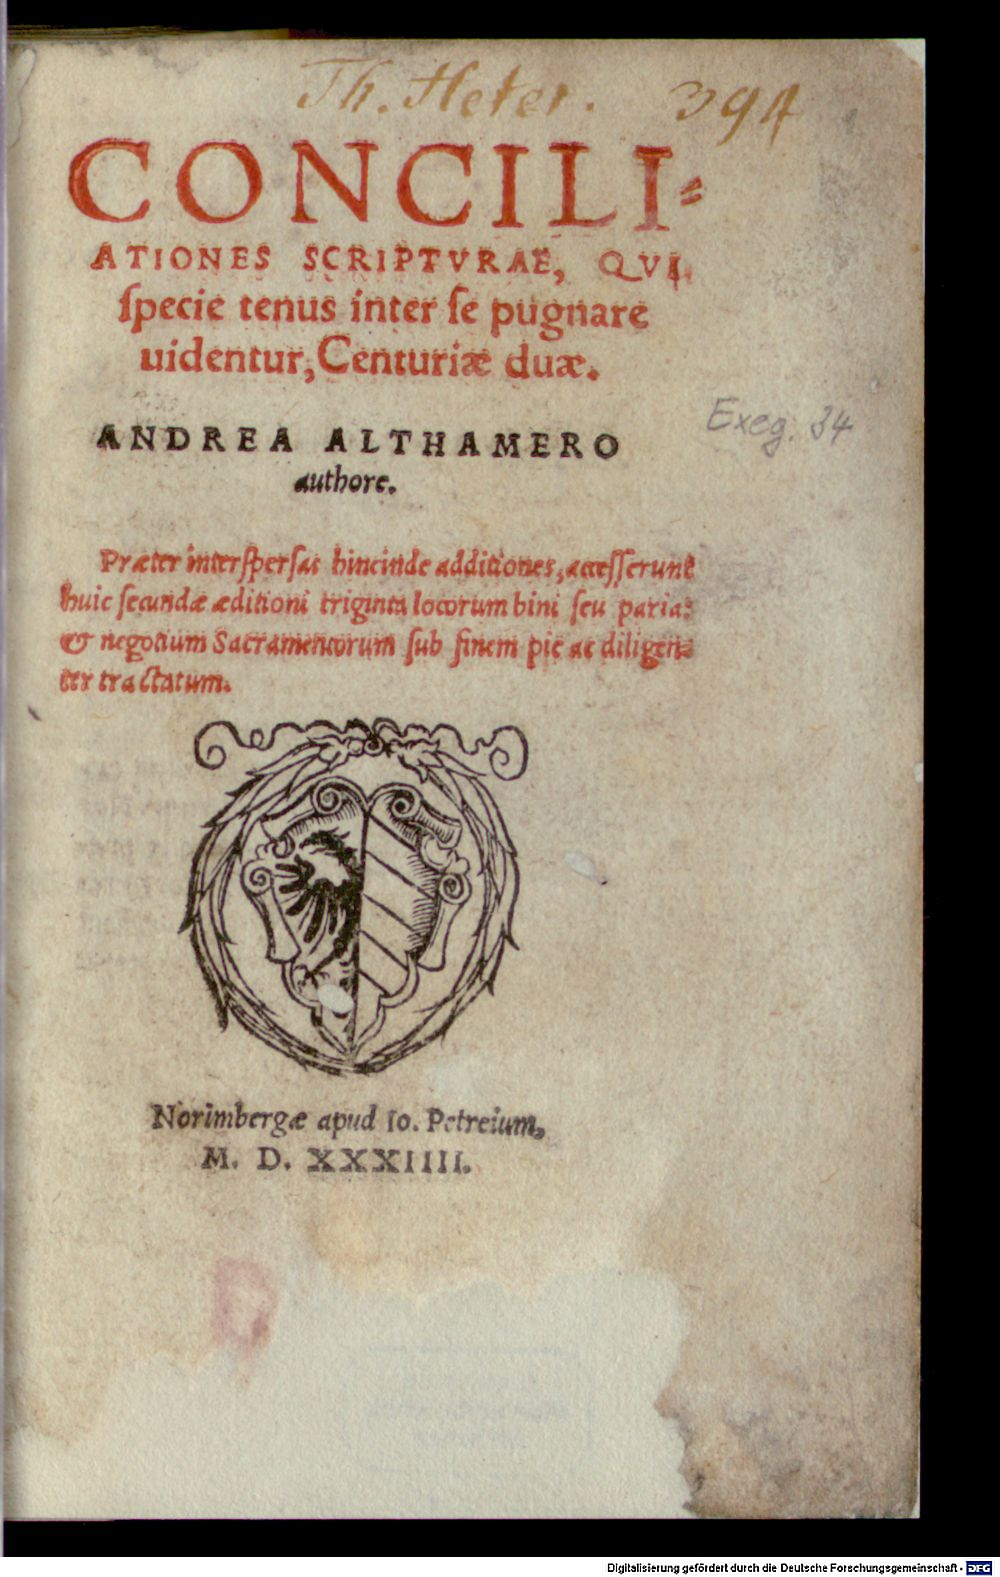 Th. Heter. 394
CONCILI⸗
ATIONES SCRIPTVRAE, QVI
ſpecie tenus inter ſe pugnare
uidentur, Centuriæ duæ.
ANDREA ALTHAMERO
authore.
Exeg. 34
Præter interſperſas hincinde additiones, acceſſerunt
huic ſecundæ æditioni triginta locorum bini ſeu paria:
& negotium Sacramentorum ſub finem pie ac diligen⸗
ter tractatum.
Norimbergæ apud Io. Petreium,
M. D. XXXIIII.
Digitalisierung gefördert durch die Deutsche Forschungsgemeinschaft - DFG